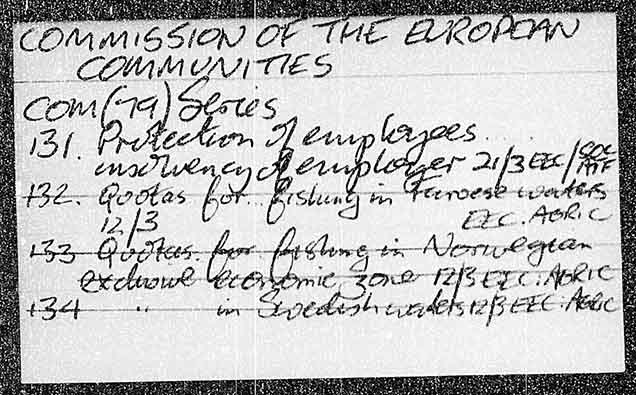 COMMISSION OF THE EUROPEAN
COMMUNITIES
COM(79) Series
131. Protection of employees
insolvency of employer 21/3 EEC/SOC AFF
132. Quotas for fishing in Faroese waters
12/3 EEC. AGRIC
133 Quotas for fishing in Norwegian
exclusive economic zone 12/3 EEC. AGRIC
134 " in Swedish waters 12/3 EEC. AGRIC